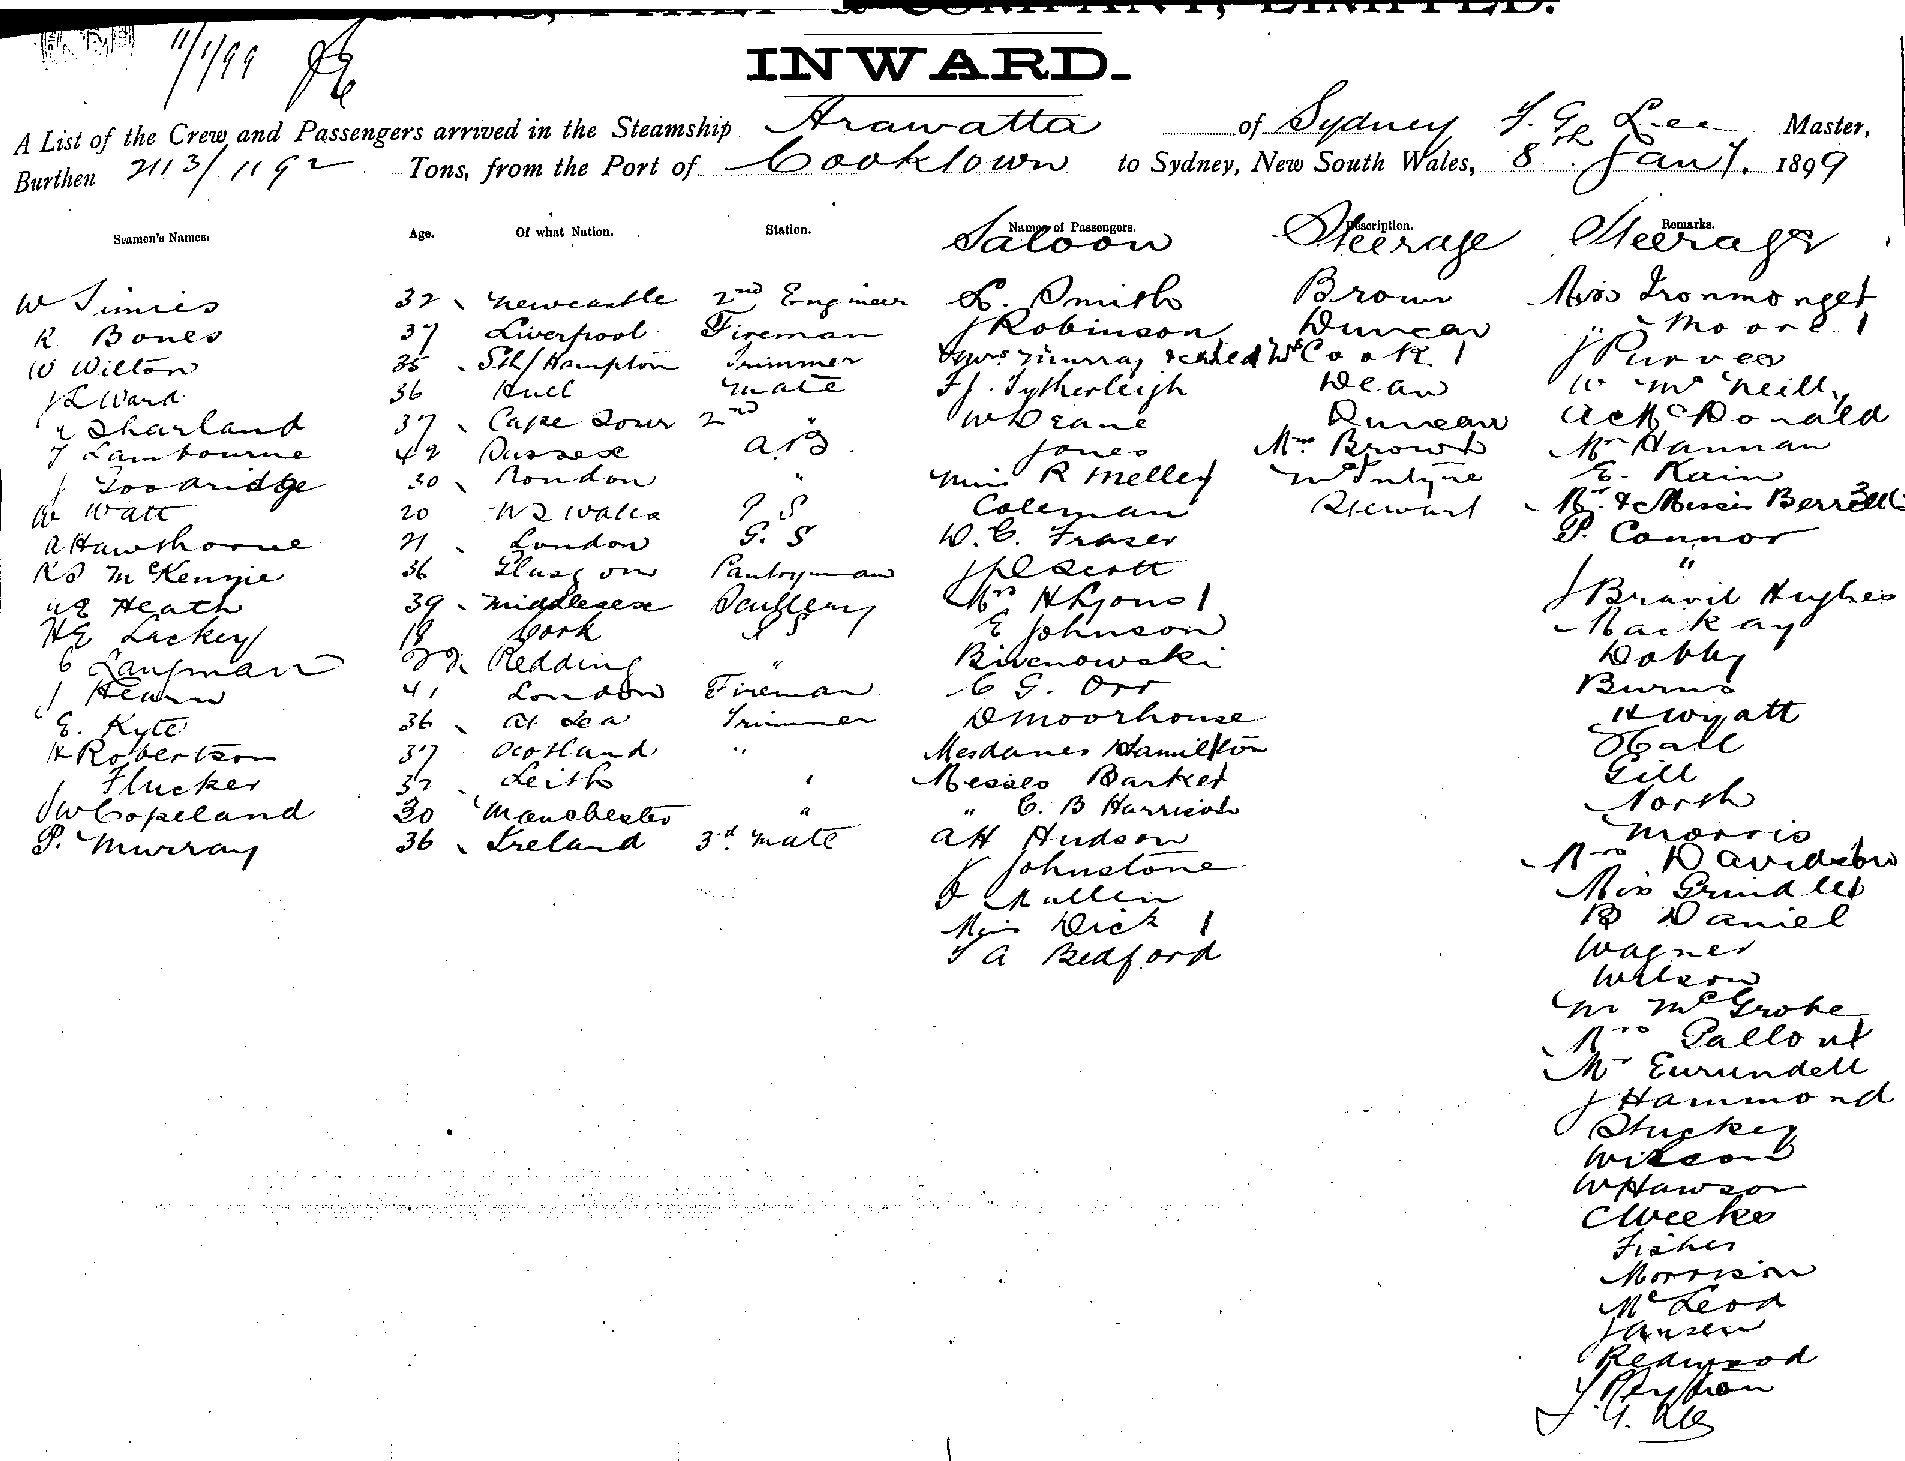 & COMPANY, LIMITED.
11/1/99
INWARD.
A List of the Crew and Passengers arrived in the Steamship Arawatta of Sydney T. G. Lee Master,
Burthen 2113/1192 Tons, from the Port of Cooktown to Sydney, New South Wales, 8th Jany. 1899
Seamen's Names. Age. Of what Nation. Station. Names of Passengers. Description. Remarks.
Saloon Steerage Steerage
W Simies 32 Newcastle 2nd Engineer L. Smith Brown Miss Ironmonger
R Bones 37 Liverpool Fireman J Robinson Duncan " Moore 1
W Wilton 35 Sth/Hampton Trimmer Mrs Murray & child McCook 1 J Purves
J L Ward 36 Hull Mate F J. Tytherleigh Dean W McNeill
Sharland 37 Cape Town 2nd " W Deane Duncan A C McDonald
T Lambourne 42 Sussex A B Jones Mrs Brown Mr Hannan
J Goodridge 30 London " Miss R Melley McIntyre E. Kain
W Watt 20 N S Wales G S Coleman Stewart Mr. & Misses Berrell
A Hawthorne 21 London G. S W. C. Fraser P. Connor
R D McKenzie 36 Glasgow Pantryman J D Scott "
A E Heath 39 Middlesex Scullery Mrs H Lyons 1 J Bravil Hughes
H E Lackey 19 Cork S E Johnson Mackay
C Langman 22 Redding " Biwenowski Dobby
J Hearn 41 London Fireman C G. Orr Burns
E. Kyte 36 At Sea Trimmer D Moorhouse H Wyatt
H Robertson 37 Scotland " Mesdames Hamilton Hall
J Flucker 32 Leith " Messrs Barker Gill
J W Copeland 30 Manchester " " C. B Harrison North
P. Murray 36 Ireland 3rd Mate A H Hudson Morris
J Johnstone Mrs Davidson
J Mullen Miss Grindley
Miss Dick 1 B Daniel
T A Bedford Wagner
Wilson
M McGrobe
Mrs Pallout
Mr Eurundell
J Hammond
Stuckey
Wilson
W Hawson
C Weekes
Fisher
Morrison
McLeod
Jansen
Redwood
J Peyton
T. G. Lee